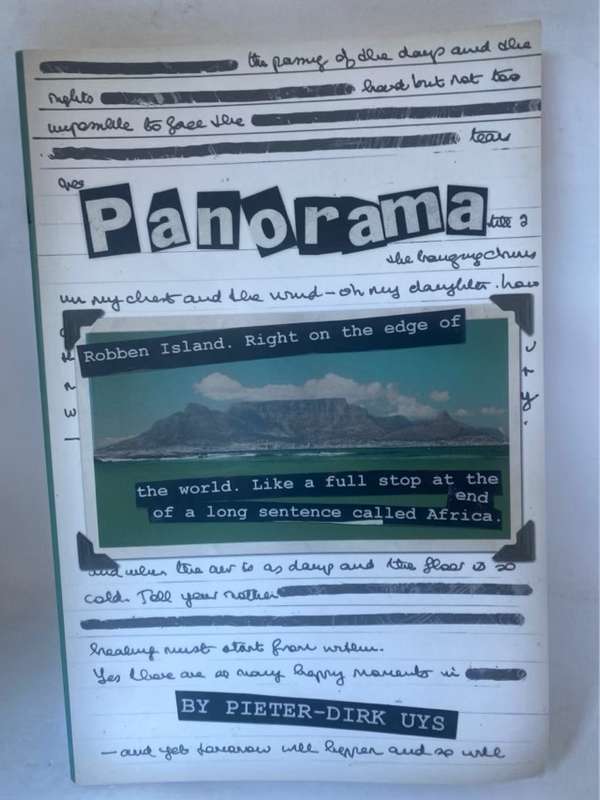 the passing of the days and the
nights hard but not too
impossible to face the
tears
Panorama
the hanging
on my chest and the wind - oh my daughter. how
Robben Island. Right on the edge of
the world. Like a full stop at the
end
of a long sentence called Africa.
and when the air is as damp and the floor is so
cold. Tell your mother
healing must start from within.
Yes there are so many happy moments in
BY PIETER-DIRK UYS
— and yet tomorrow will happen and so will